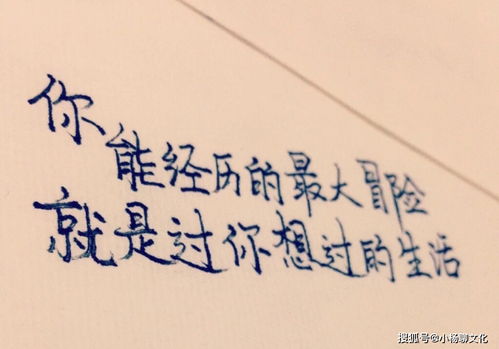 你
能经历的最大冒险
就是过你想过的生活
搜狐号@小杨聊文化